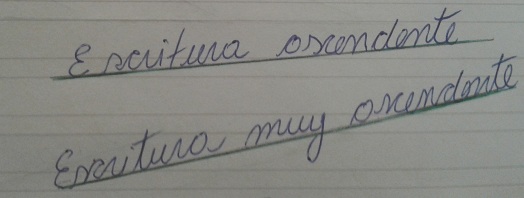 Escritura ascendente
Escritura muy ascendente